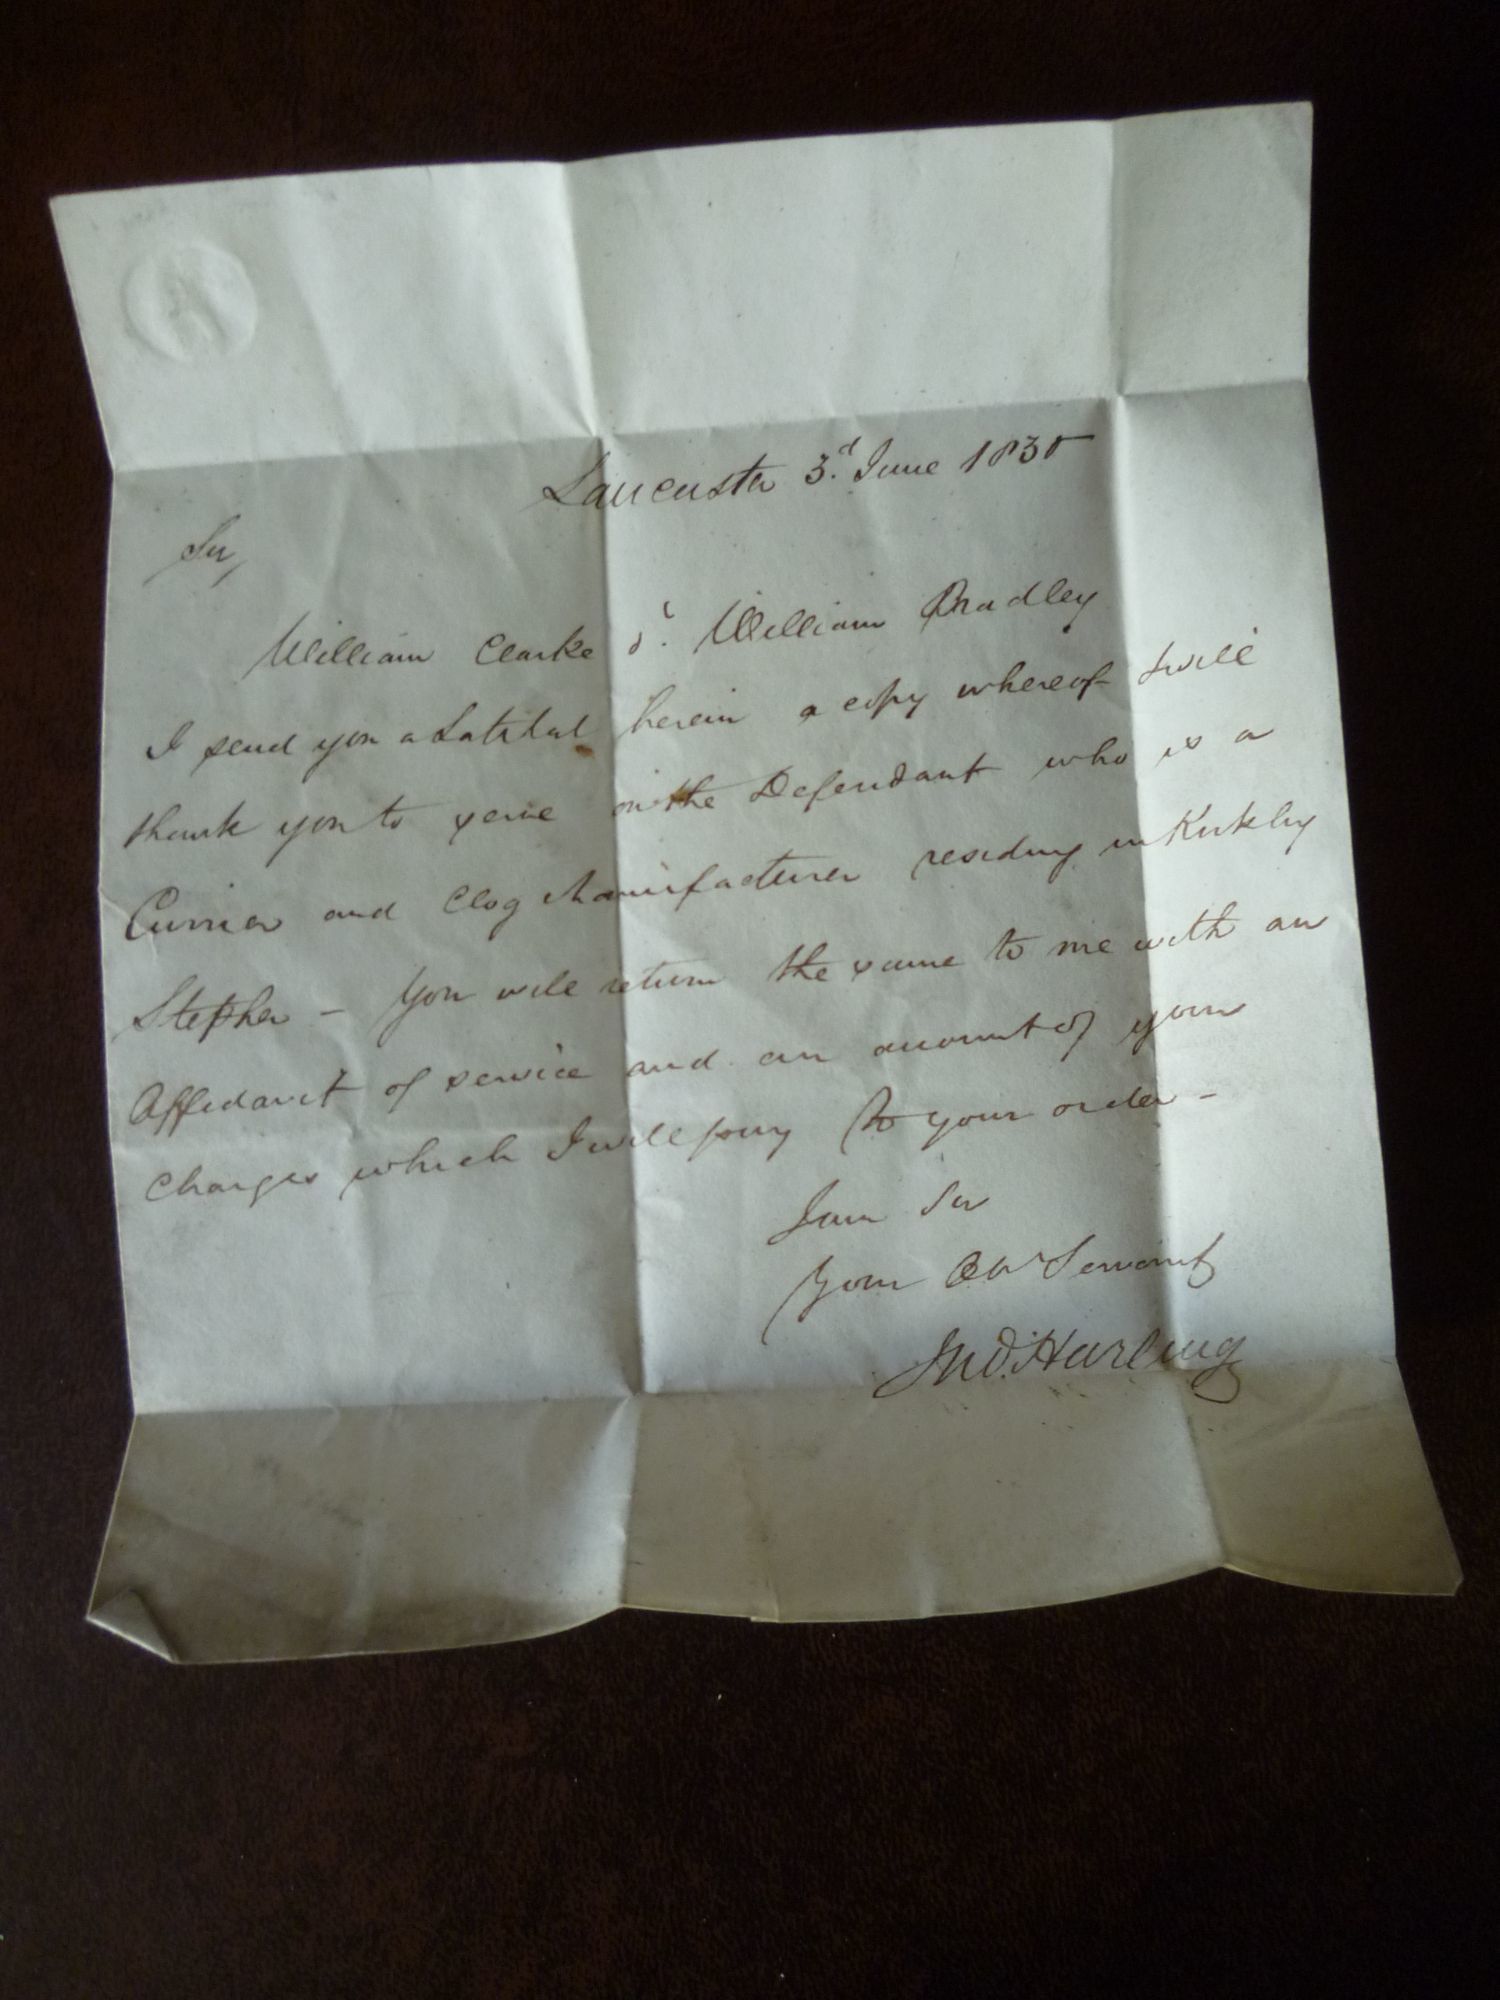 Lancaster 3.d June 1830
Sir,
William Clarke v. William Bradley
I send you a Latitat herein a copy whereof I will
thank you to serve on the Defendant who is a
Currier and Clog Manufacturer residing in Kirkby
Stephen – You will return the same to me with an
Affidavit of service and an account of your
Charges which I will pay to your order –
I am Sir
Your Ob Servant
Jno. Harling